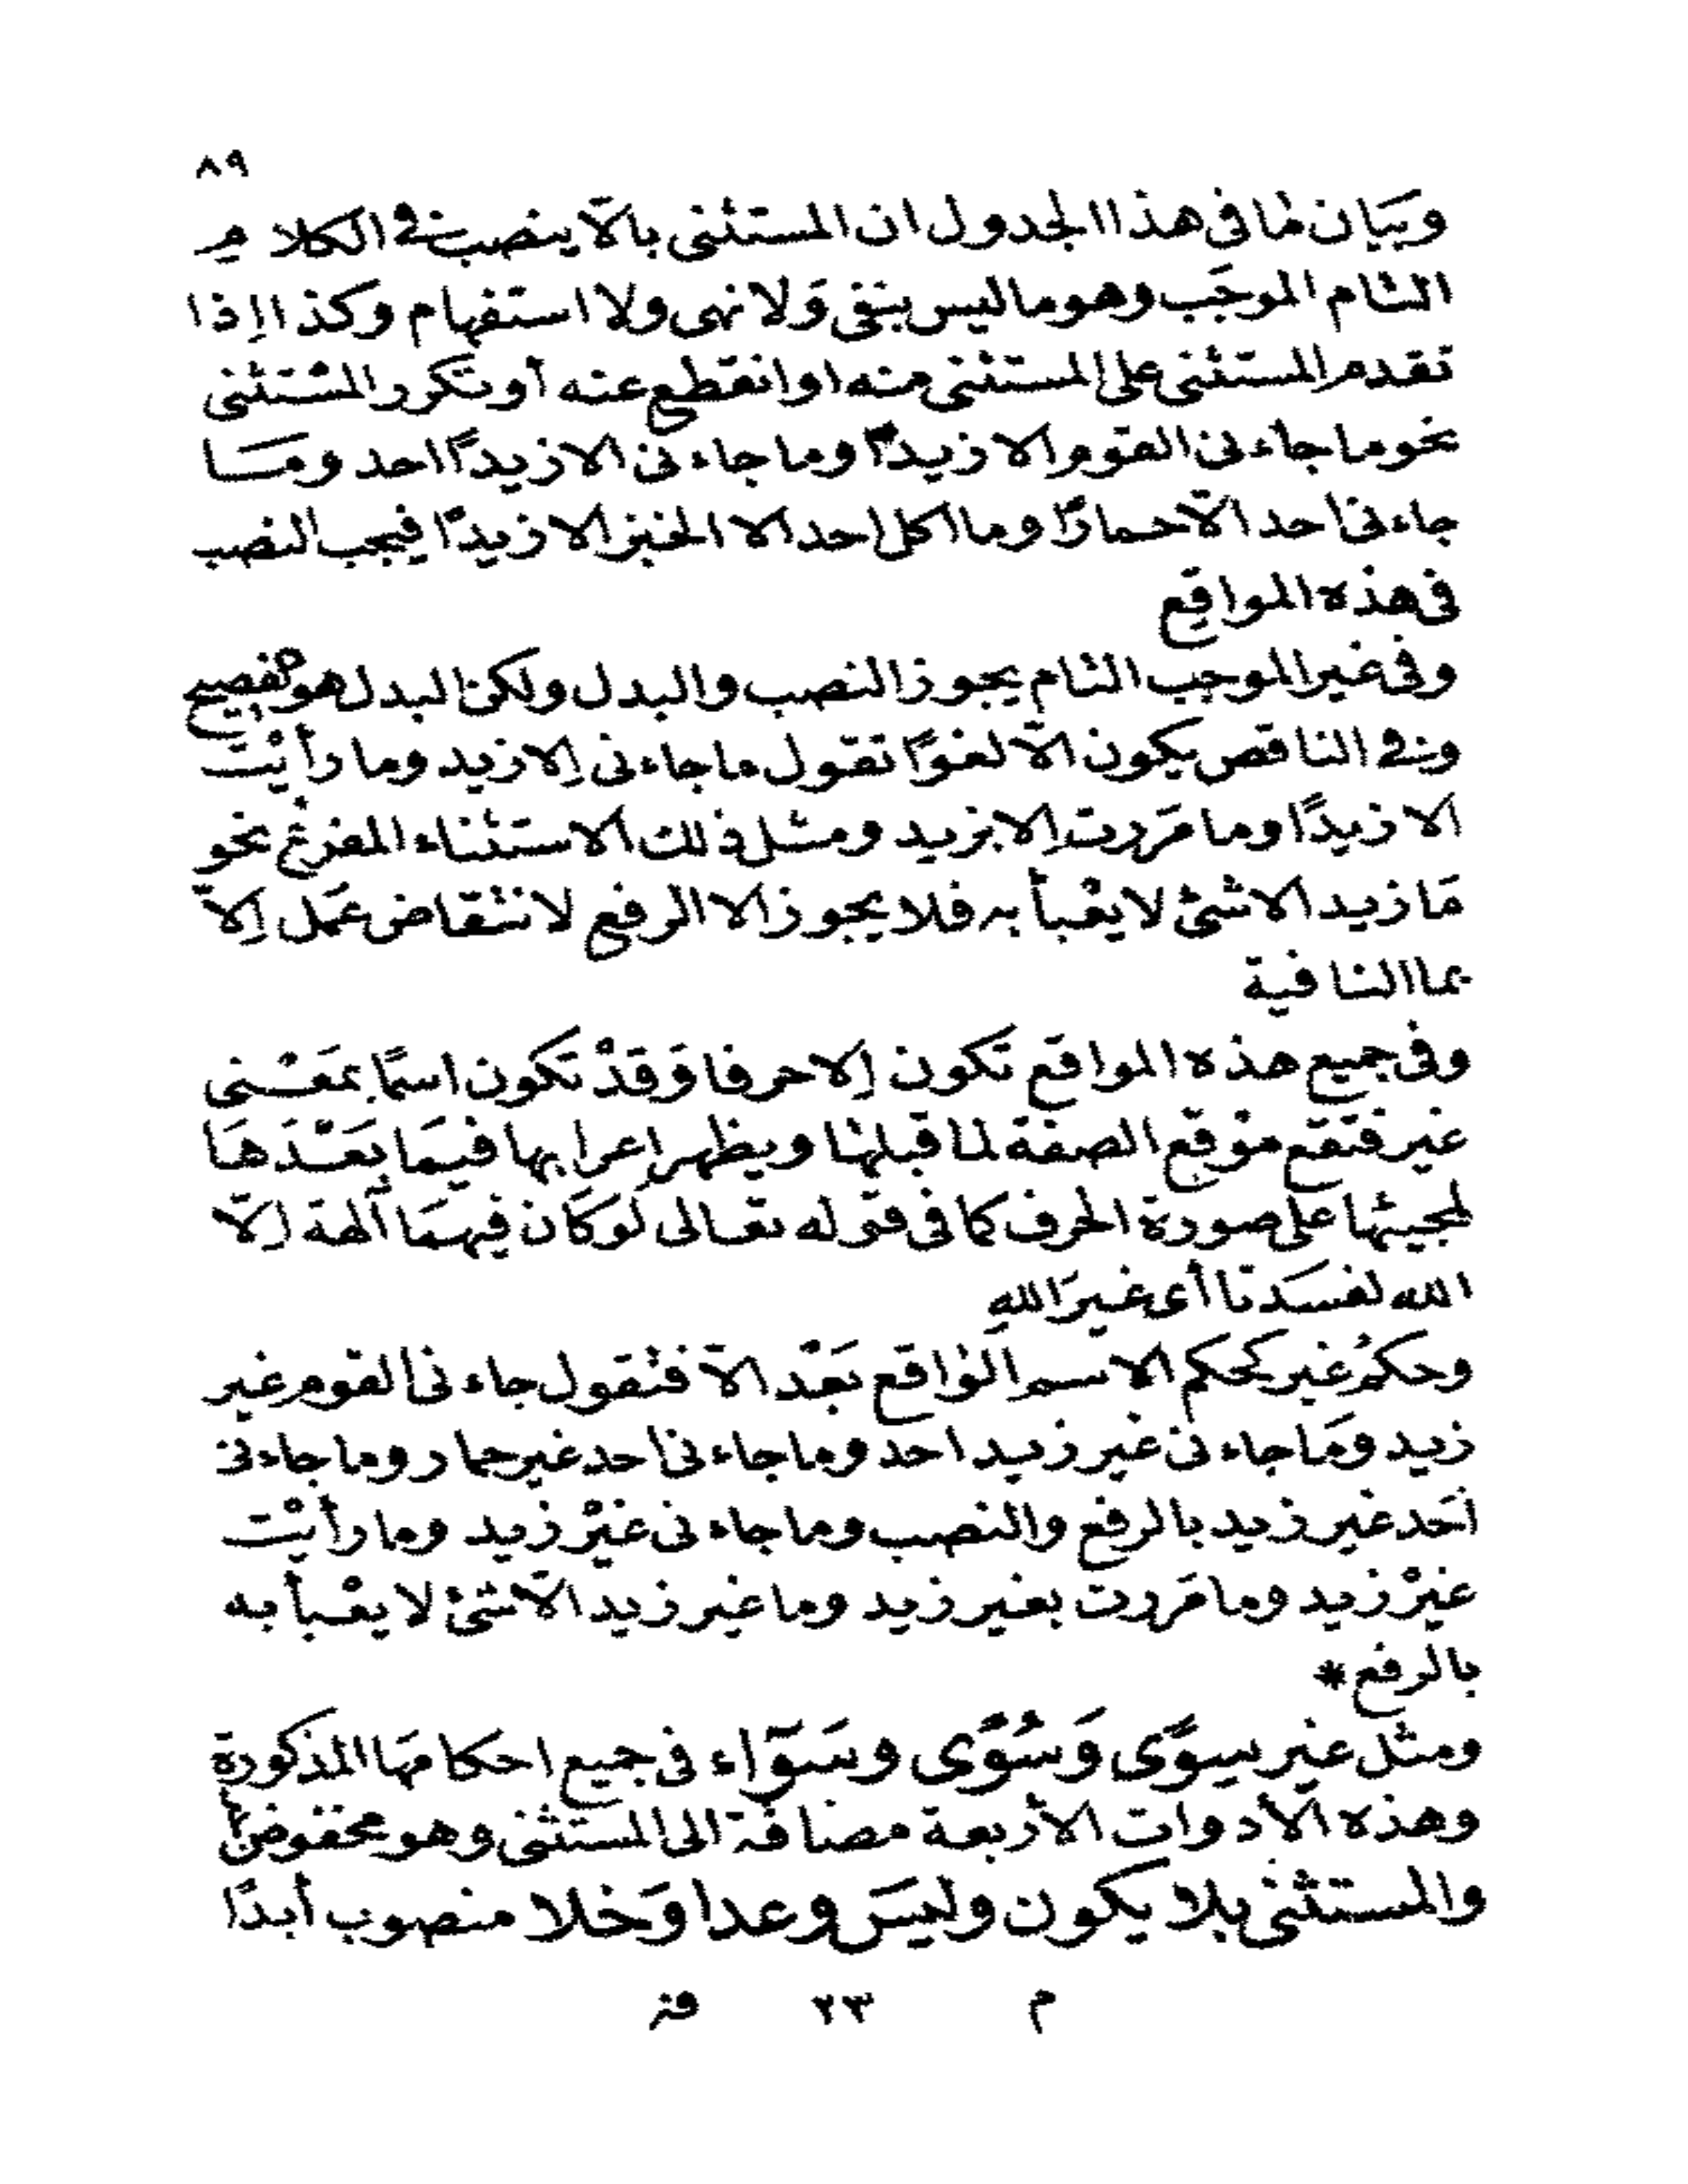 ٨٩
وبَيَان لما فى هذا الجدول ان المستثنى بالّا ينصب فى الكلام
التام الموجَب وهو ما ليس بنفى وَلا نهى ولا استفهام وكذا إذا
تقدم المستثنى على المستثنى منه او انقطع عنه أو تكرر المستثنى
نحو ما جاءنى القوم الا زيدًا وما جاءنى الا زيدًا احد ومَا
جاءنى احد الّا حمارًا وما اكل احد الا الخبز الا زيدًا فيجب النصب
فى هذه المواقع
وفى غير الموجب التام يجوز النصب والبدل ولكن البدل هو الفصيح
وفى الناقص يكون الّا لغوًا تقول ما جاءنى إلا زيد وما رأيْت
الا زيدًا وما مَررت إلا بزيد ومثل ذلك الاستثناء المفرغ نحو
مَا زيد الا شئ لا يعْبأ به فلا يجوز الا الرفع لانتقاض عَمل إلّا
بما النافية
وفى جميع هذه المواقع تكون إلا حرفا وَقَدْ تكون اسمًا بمَعْنى
غير فتقع موْقع الصفة لما قبلها ويظهر إعرابها فيمَا بَعْدَهَا
لمجيئها على صورة الحرف كما فى قوله تعالى لَو كَان فِيهمَا آلهة إلّا
الله لفسَدتا أى غيرَ اللهِ
وحكمُ غير كحكم الاسم الواقع بَعْد الّا فتقول جاءنى القوم غير
زيد ومَا جاءنى غير زيد احد وما جاءنى احد غير حمار وما جاءنى
أحَد غير زيد بالرفع والنصب وما جاءنى غيْر زيد وما رأيْت
غيْر زيد وما مَررت بغير زيد وما غير زيد الّا شئ لا يعْبأ به
بالرفع *
ومثل غير سِوًى وَسُوًى وسَوَآء فى جميع احكامهَا المذكورة
وهذه الأدوات الأربعة مضافة الى المستثنى وهو مخفوض بها
والمستثنى بلا يكون وليسَ وعدا وَخلا منصوب أبدًا
م ٢٣ فز